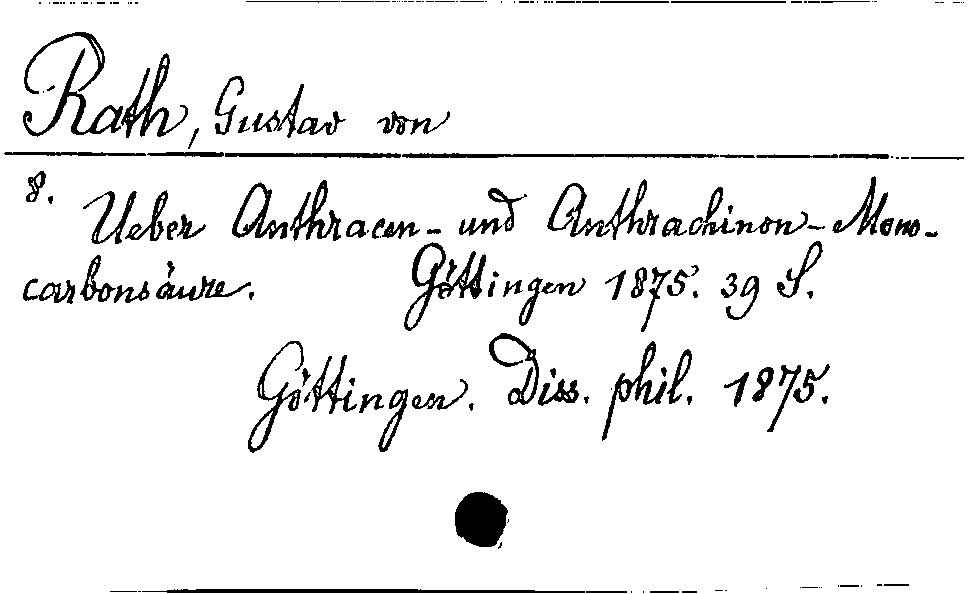 Rath, Gustav von
8.
Ueber Anthracen- und Anthrachinon-Mono-
carbonsäure. Göttingen 1875. 39 S.
Göttingen. Diss. phil. 1875.